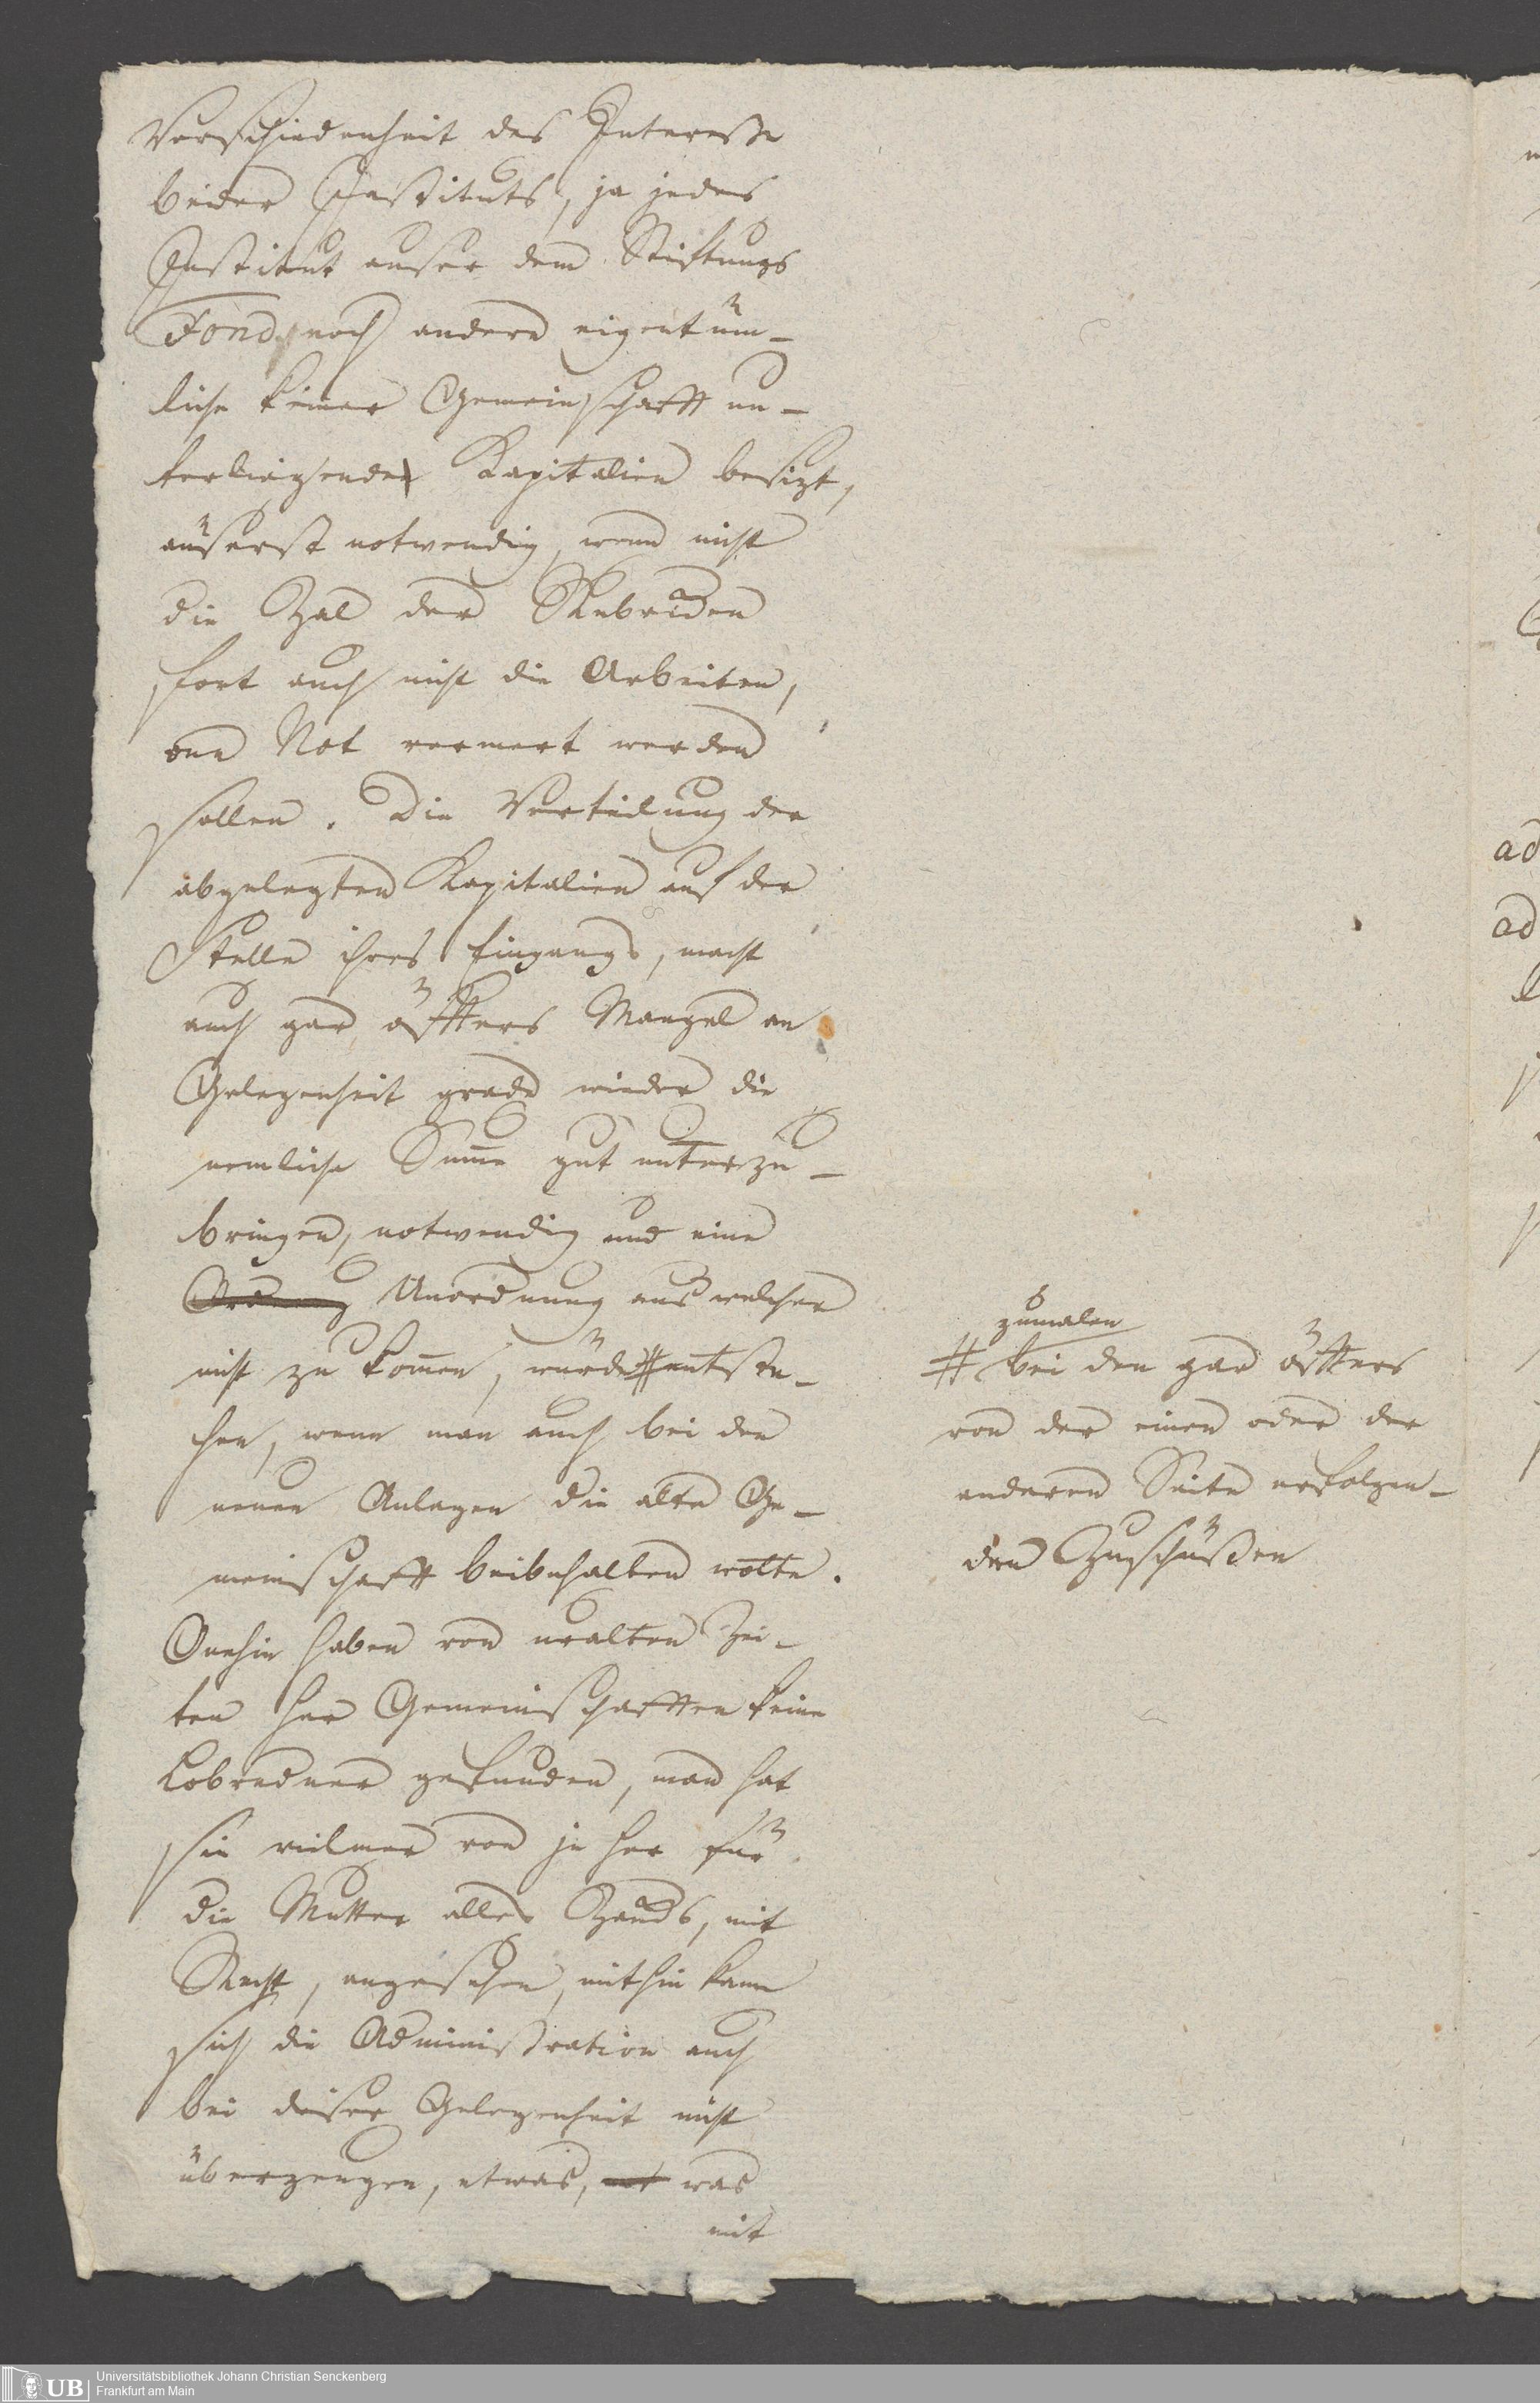 Verschiedenheit des Interesse
beider Instituts, ja jedes
Institut auser dem Stiftungs
Fond, noch andere eigentüm-
liche keiner Gemeinschafft un-
terliegende Kapitalien besizt,
äuserst notwendig, wenn nicht
die Zal der Rubriken
fort auch nicht die Arbeiten,
one Not vermert werden
sollen. Die Verteilung der
abgelegten Kapitalien auf der
Stelle ihres Eingangs, macht
auch gar öffters Mangel an
Gelegenheit grade wieder die
nemliche Summe gut unterzu-
bringen, notwendig und eine
Ordnung Unordnung aus welcher
nicht zu kommen, würde # entste-
hen, wenn man auch bei den
neuen Anlagen die alte Ge-
meinschafft beibehalten wolte.
Onehin haben von uralten Zei-
ten her Gemeinschafften keine
Lobredner gefunden, man hat
sie vielmer von je her für
die Mutter alles Zanks, mit
Recht, angesehen, mithin kann
sich die Administration auch
bei dieser Gelegenheit nicht
überzeugen, etwas, was
mit
zumalen
# bei den gar öffters
von der einen oder der
anderen Seite erfolgen-
den Zuschüßen
ad
ad
UB
Universitätsbibliothek Johann Christian Senckenberg
Frankfurt am Main